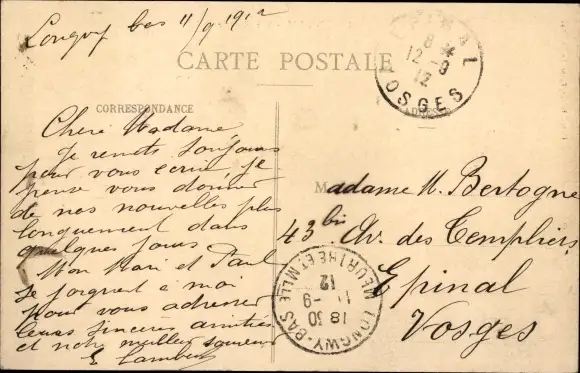 Longwy bas 11/9 1912
CARTE POSTALE
EPINAL
8
12-9
12
VOSGES
CORRESPONDANCE
ADRESSE
Chère Madame,
Je remets toujours
pour vous écrire, je
pense vous donner
de nos nouvelles plus
longuement dans
quelques jours
Mon Mari et Paul
se joignent à moi
pour vous adresser
leurs sincères amitiés
et notre meilleur souvenir
E Lambert
Madame M. Bertogne
43 bis Av. des Templiers
Epinal
Vosges
LONGWY-BAS
MEURTHE ET MLLE
18 30
11-9
12